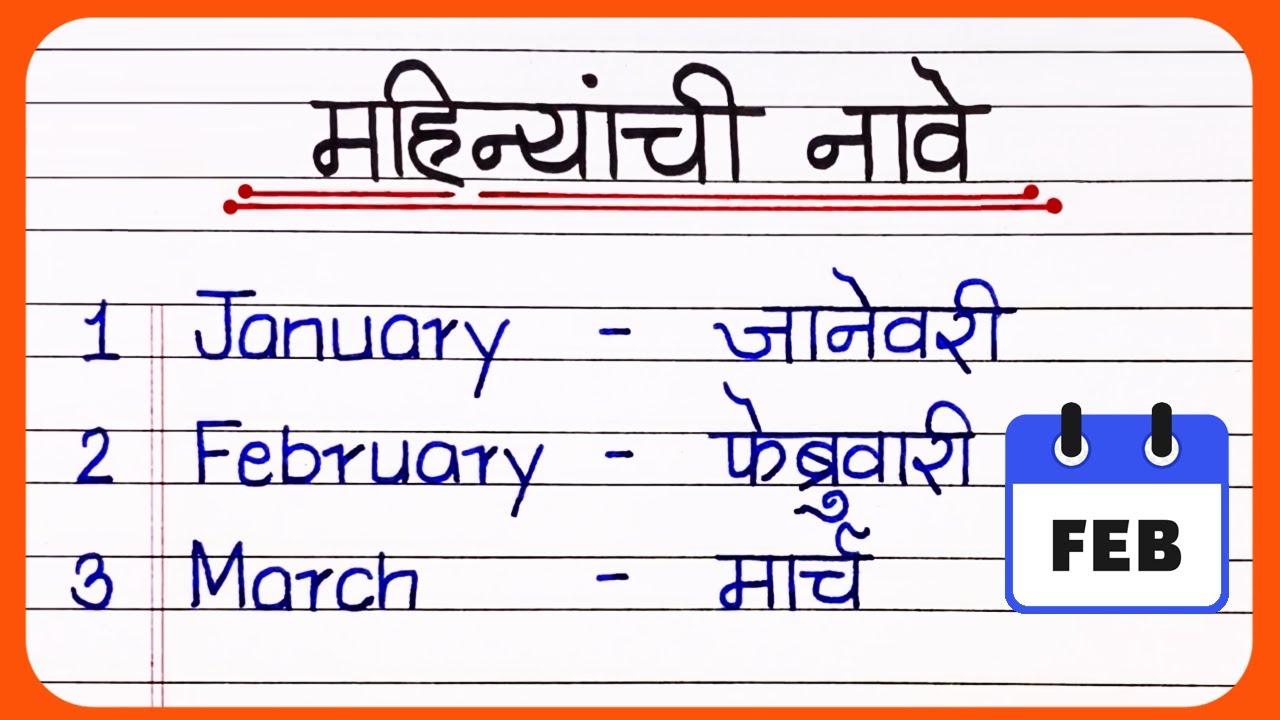 महिन्यांची नावे
1 January - जानेवरी
2 February - फेब्रुवारी
3 March - मार्च
FEB